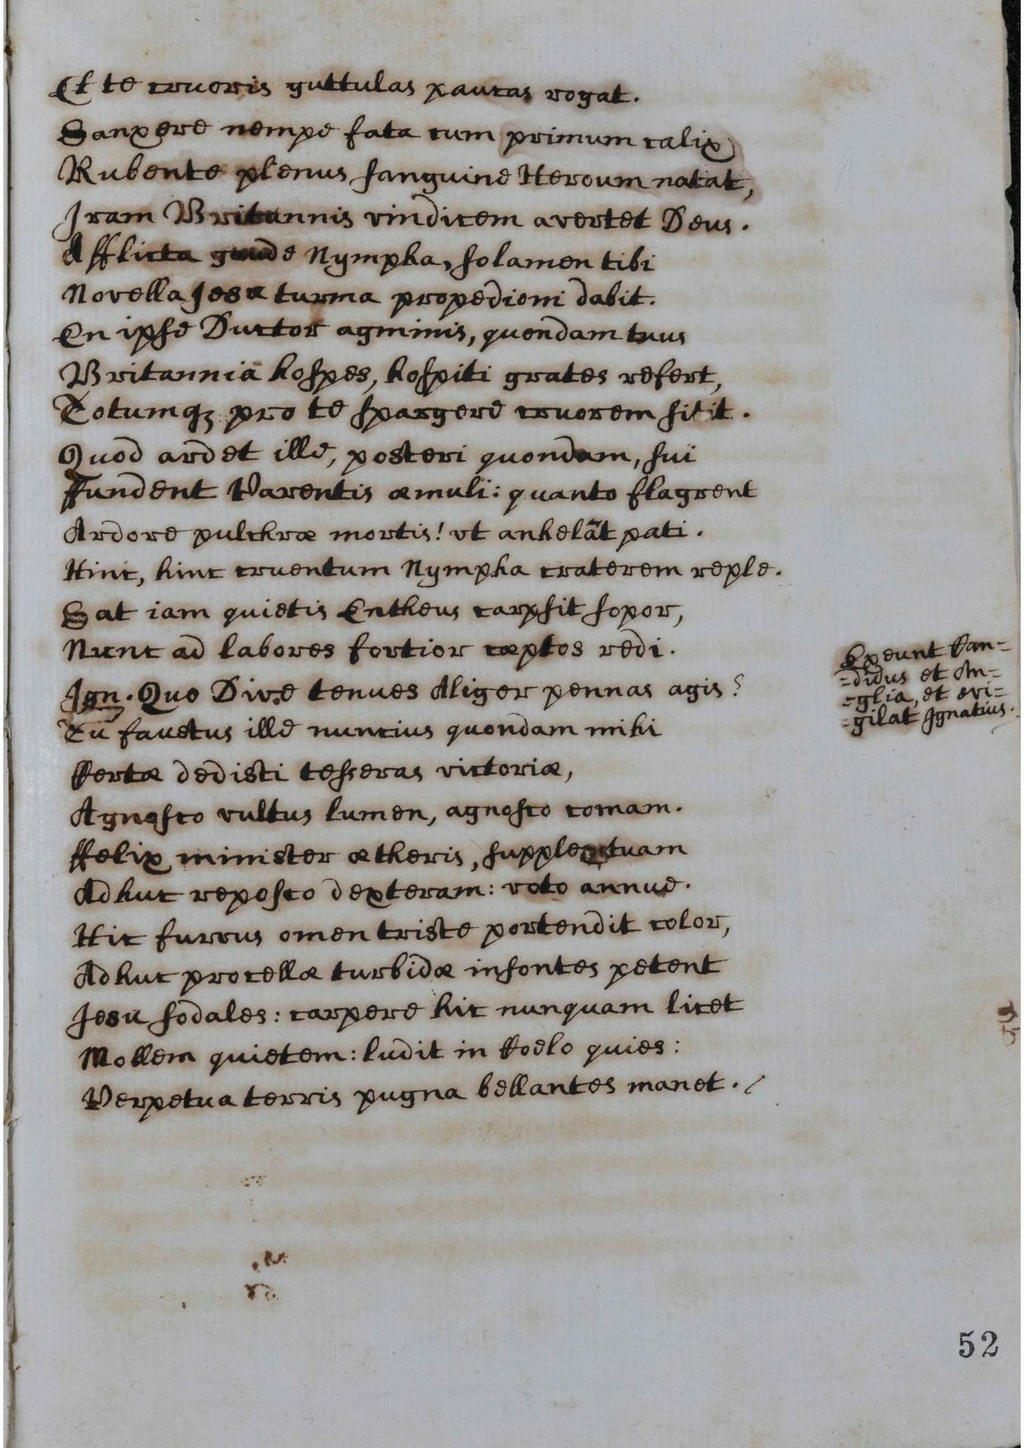 Et te cruoris guttulas paucas rogat.
Sanxere nempe fata cum primum calix
Rubente plenus sanguine Heroum natat,
Iram Britannis vindicem avertet Deus.
Afflicta gaude Nympha, solamen tibi
Novella Jesu turma propediem dabit.
En ipse Ductor agminis, quondam tuus
Britanniã hospes, hospiti grates refert,
Totumq; pro te spargere cruorem sitit.
Quod ardet ille, posteri quondam, sui
Fundent Parentis æmuli: quanto flagrent
Ardore pulchræ mortis! vt anhelãt pati.
Hinc, hinc cruentum Nympha craterem reple.
Sat iam quietis Entheus carpsit sopor,
Nunc ad labores fortior cœptos redi.
Exeunt Can=
=didus et An=
=glia, et evi=
=gilat Ignatius.
Ign. Quo Dive tenues Aliger pennas agis?
Tu faustus ille nuncius quondam mihi
Certæ dedisti tesseras victoriæ,
Agnosco vultus lumen, agnosco comam.
Felix minister ætheris, supplex tuam
Adhuc reposco dexteram: voto annue.
Hic furvus omen triste portendit color,
Adhuc procellæ turbidæ insontes petent
Jesu sodales: carpere hic nunquam licet
Mollem quietem: ludit in Cœlo quies:
Perpetua terris pugna bellantes manet.
52